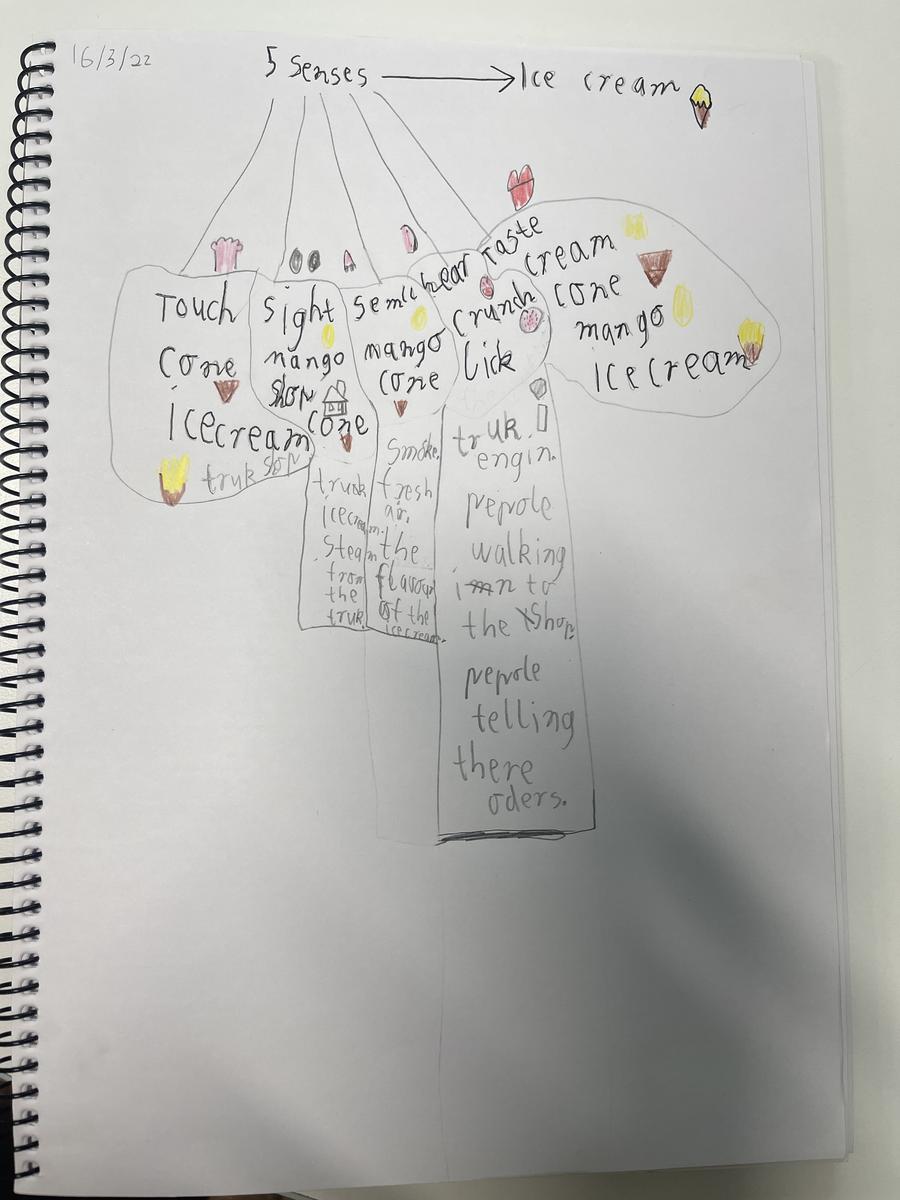 16/3/22
5 senses → Ice cream
Touch
cone
icecream
truk shop
sight
mango
shop
cone
truck
icecream.
steam
from
the
truk.
mango
cone
smoke.
fresh
air.
the
flavour
of the
icecream.
hear
crunch
lick
truk.
engin.
pepole
walking
in to
the shop.
pepole
telling
there
oders.
Taste
cream
cone
mango
icecream